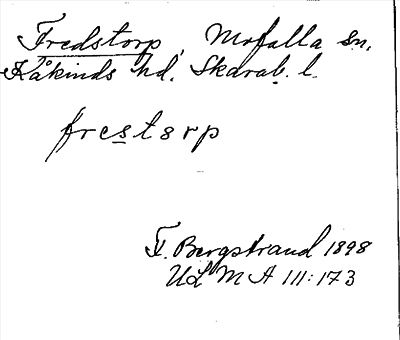 Fredstorp, Mofalla sn,
Kåkinds hd. Skarab. l.
frestorp
F. Bergstrand 1898
ULMA 111:173